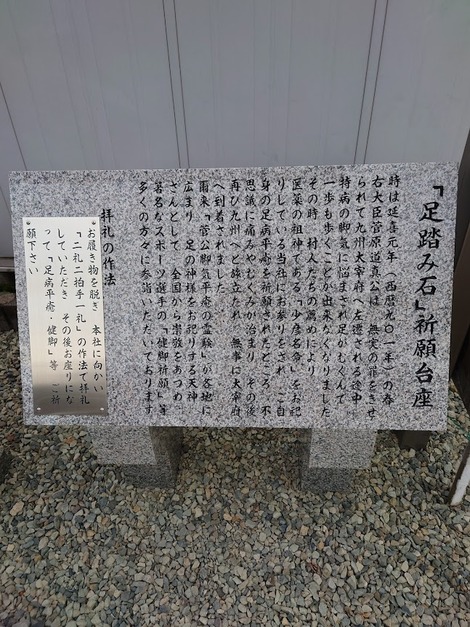 「足踏み石」祈願台座
時は延喜元年(西暦九〇一年)の春
右大臣菅原道真公は、無実の罪をきせ
られて九州太宰府へ左遷される途中
持病の脚気に悩まされ足がむくんで
一歩も歩くことが出来なくなりました
その時、村人たちの薦めにより
医薬の祖神である「少彦名命」をお祀
りしている当社にお参りをされ、ご自
身の足病平癒を祈願されたところ、不
思議に痛みやむくみが治まり、その後
再び九州へと旅立たれ、無事に太宰府
へ到着されました
爾来「菅公脚気平癒の霊験」が各地に
広まり、足の神様をお祀りする天神
さんとして、全国から崇敬をあつめ
著名なスポーツ選手の「健脚祈願」等
多くの方々に参詣いただいております
拝礼の作法
お履き物を脱ぎ、本社に向かい
「二礼二拍手一礼」の作法で拝礼
していただき、その後お座りにな
って「足病平癒・健脚」等、ご祈
願下さい